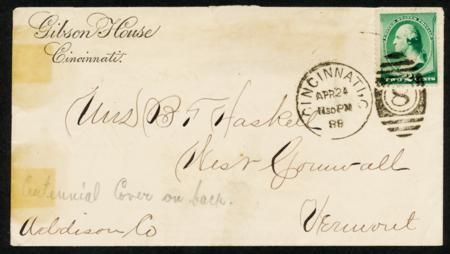 Gibson House
Cincinnati.
UNITED STATES POSTAGE
2
TWO CENTS
CINCINNATI, O.
APR 24
1130 PM
88
8
Mrs B F Haskell
West Cornwall
Centennial Cover on back.
Addison Co
Vermont